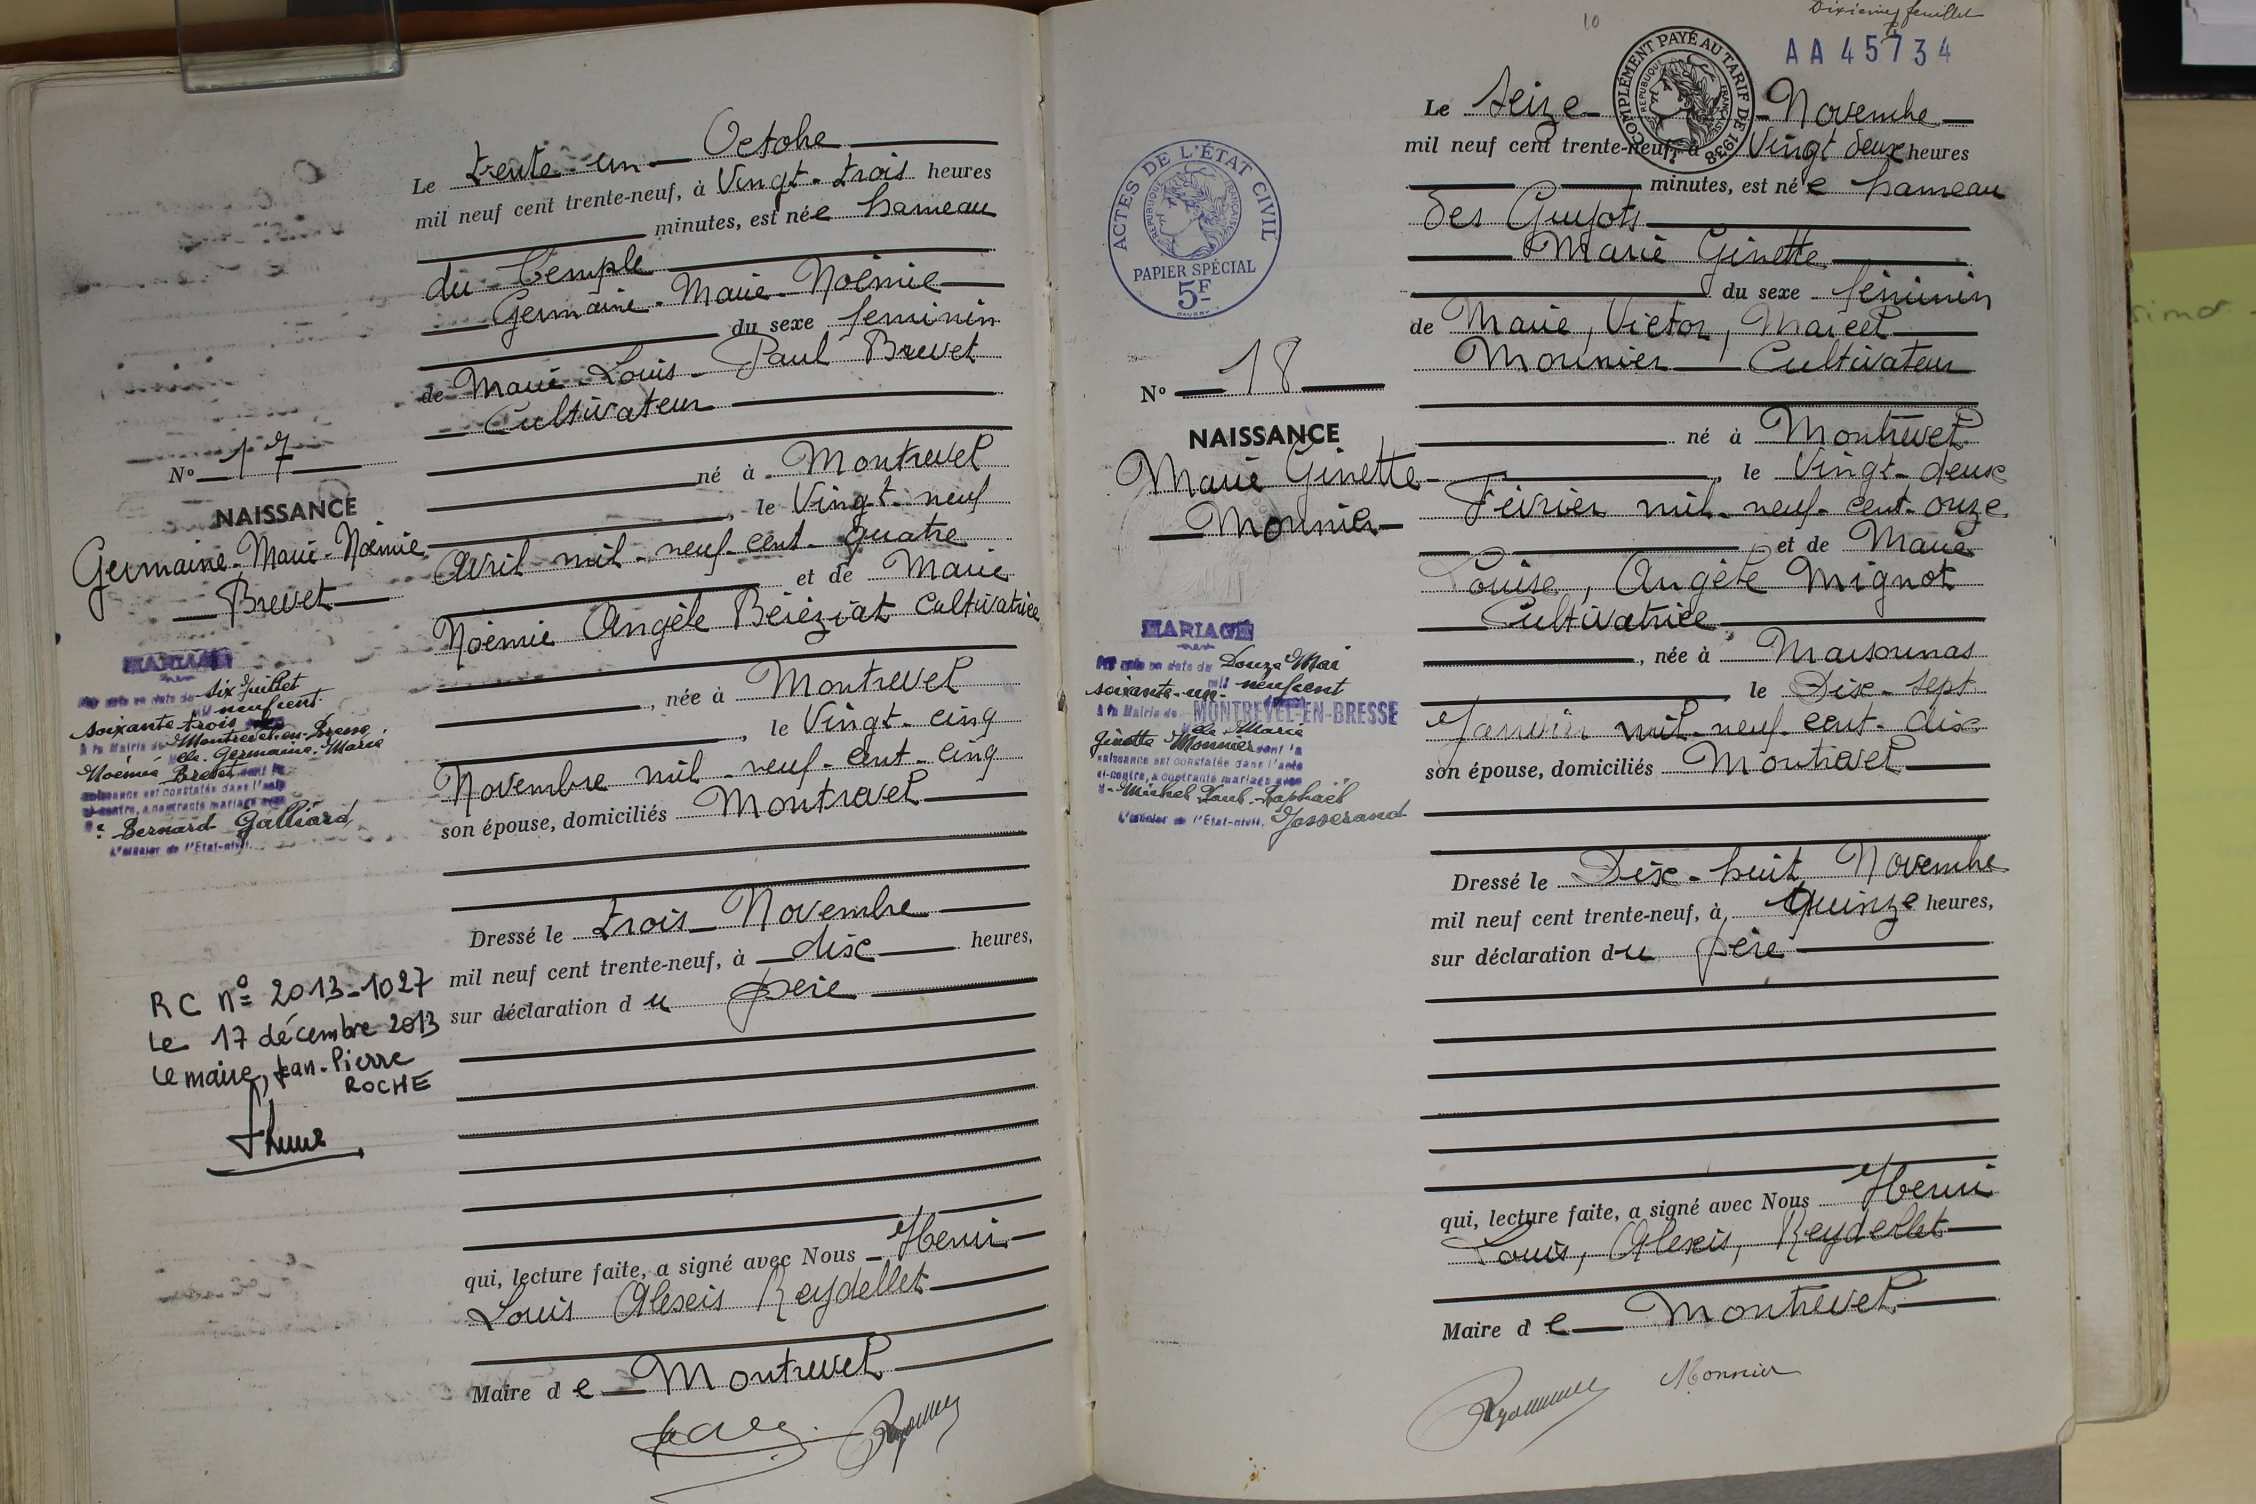 Le trente un Octobre
mil neuf cent trente-neuf, à Vingt-trois heures
minutes, est née hameau
du Temple
Germaine-Marie-Noémie
du sexe féminin
de Marie-Louis-Paul Brevet
Cultivateur
né à Montrevel
, le Vingt-neuf
Avril mil-neuf-cent-quatre
et de Marie
Noémie Angèle Béréziat Cultivatrice
, née à Montrevel
, le Vingt-cinq
Novembre mil-neuf-cent-cinq
son épouse, domiciliés Montrevel
Dressé le trois Novembre
mil neuf cent trente-neuf, à dix heures,
sur déclaration du père
qui, lecture faite, a signé avec Nous Henri
Louis Alexis Reydellet
Maire de Montrevel
No 17
NAISSANCE
Germaine-Marie-Noémie
Brevet
MARIAGE
Par acte en date du six Juillet
mil neufcent
soixante-trois
à la Mairie de Montrevel-en-Bresse
Melle Germaine-Marie
Noémie Brevet dont la
naissance est constatée dans l'acte
ci-contre, a contracté mariage avec
M. Bernard Galliard
L'officier de l'Etat-civil.
RC n° 2013-1027
Le 17 décembre 2013
Le maire, Jean-Pierre
ROCHE
10
Dixième feuillet
AA 45734
COMPLÉMENT PAYÉ AU TARIF DE 1938
RÉPUBLIQUE FRANÇAISE
Le Seize Novembre
mil neuf cent trente-neuf, à Vingt deux heures
minutes, est née hameau
des Guyots
Marie Ginette
du sexe féminin
de Marie, Victor, Marcel
Monnier Cultivateur
né à Montrevel
, le Vingt-deux
Février mil-neuf-cent-onze
et de Marie
Louise, Angèle Mignot
Cultivatrice
, née à Marsonnas
le Dix-sept
Janvier mil-neuf-cent-dix
son épouse, domiciliés Montrevel
Dressé le Dix-huit Novembre
mil neuf cent trente-neuf, à Quinze heures,
sur déclaration du père
qui, lecture faite, a signé avec Nous Henri
Louis, Alexis, Reydellet
Maire de Montrevel
Monnier
ACTES DE L'ÉTAT CIVIL
RÉPUBLIQUE FRANÇAISE
PAPIER SPÉCIAL
5F
No 18
NAISSANCE
Marie Ginette
Monnier
MARIAGE
Par acte en date du Douze Mai
mil neufcent
soixante-un
à la Mairie de MONTREVEL-EN-BRESSE
Melle Marie
Ginette Monnier dont la
naissance est constatée dans l'acte
ci-contre, a contracté mariage avec
M. Michel Paul Raphaël
L'officier de l'Etat-civil. Josserand